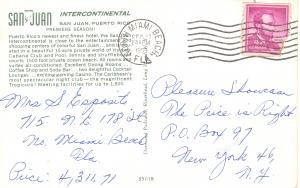 SAN JUAN INTERCONTINENTAL
SAN JUAN, PUERTO RICO
PREMIERE SEASON!
Puerto Rico's newest and finest hotel, the San Juan
Intercontinental is close to the entertainment and
shopping centers of colorful San Juan, and
Cabana Club and Pool, tennis and shuffleboard
courts, 1500 foot private ocean beach. All rooms and
suites air-conditioned. Excellent Dining Rooms
Coffee Shop and Soda Bar two delightful Cocktail
Lounges exciting gaming Casino. The Caribbean's
most spectacular night club the magnificent
Tropicoro! Meeting facilities for up to 1,500
MIAMI BEACH
FLA
Mrs S Caponit
715 N E 178 St
No. Miami Beach
Fla
Price: 4,311.71
Pleasure Showcase
The Price is Right
P.O. Box 97
New York 46,
N.Y